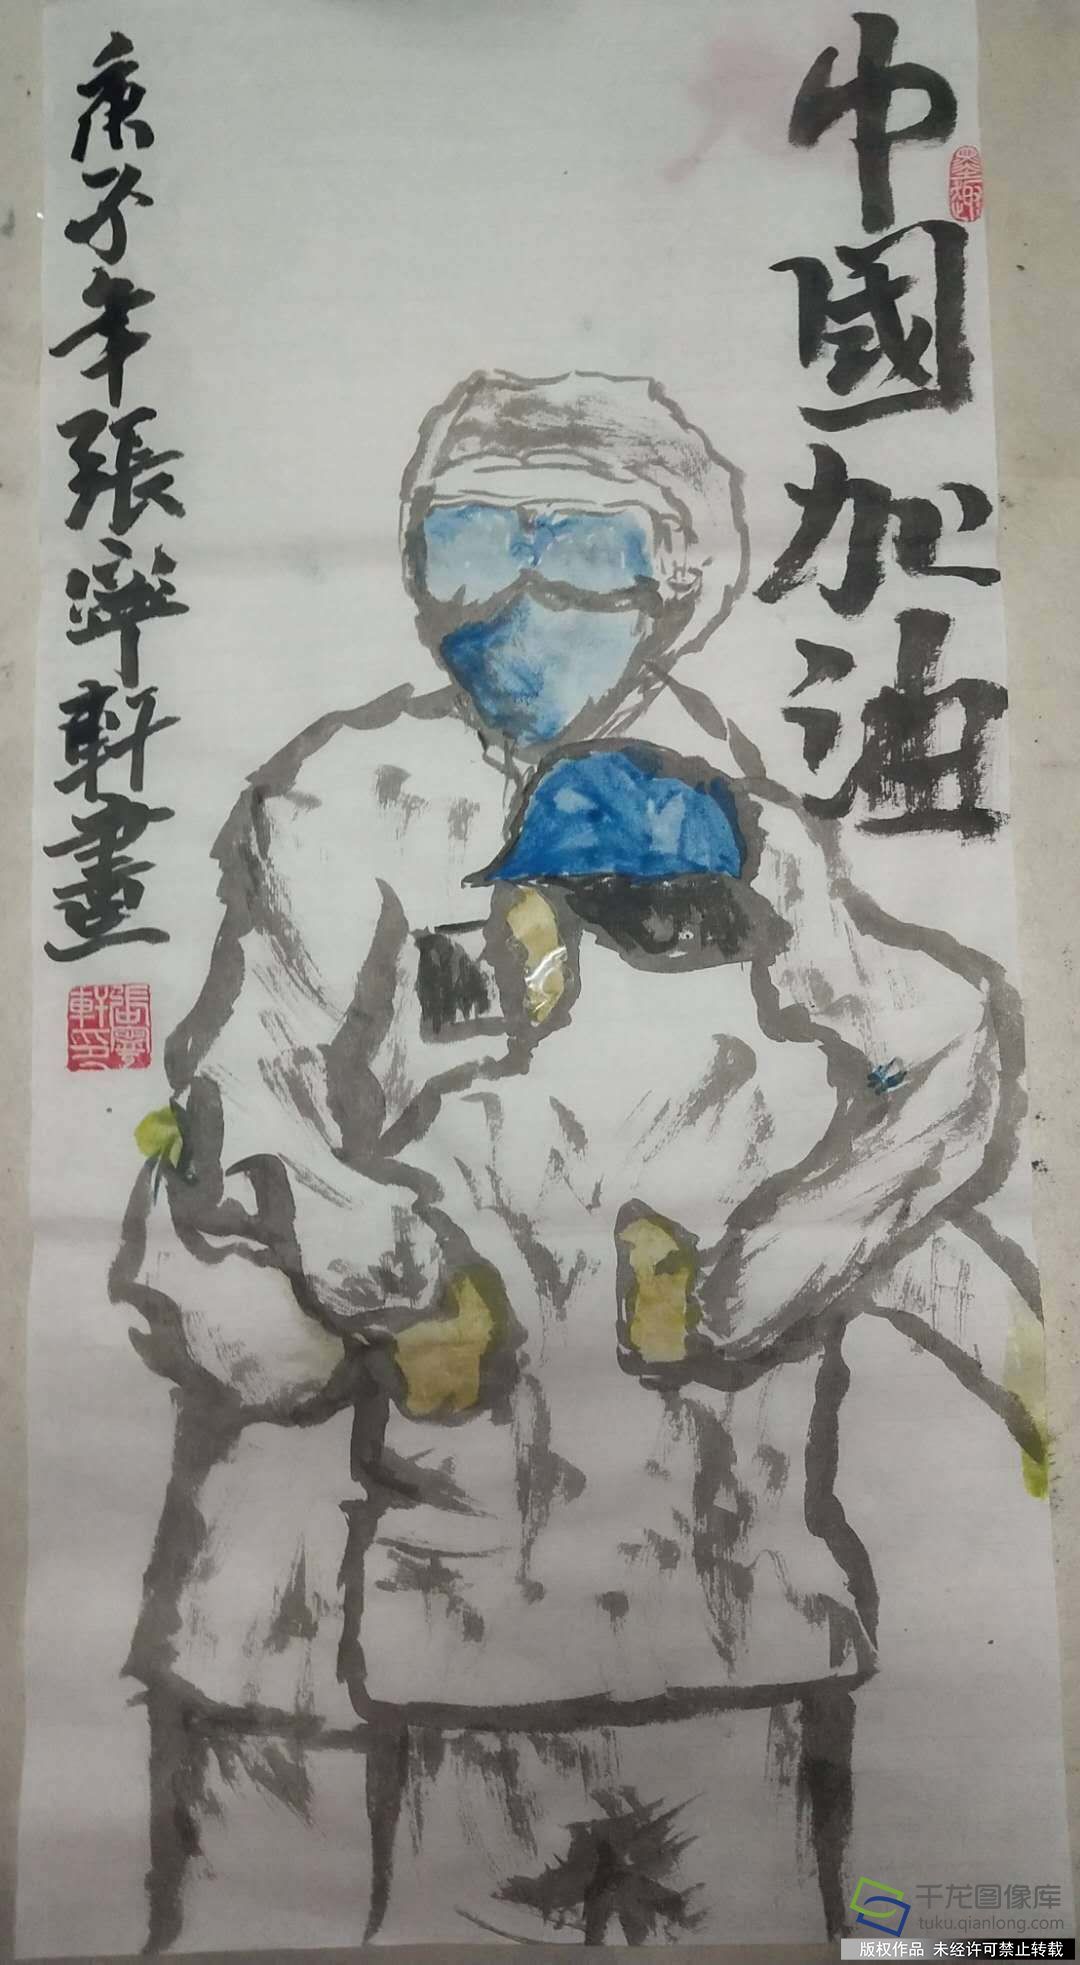 中國加油
庚子年張寧軒畫
張寧軒印
千龙图像库
tuku.qianlong.com
版权作品 未经许可禁止转载